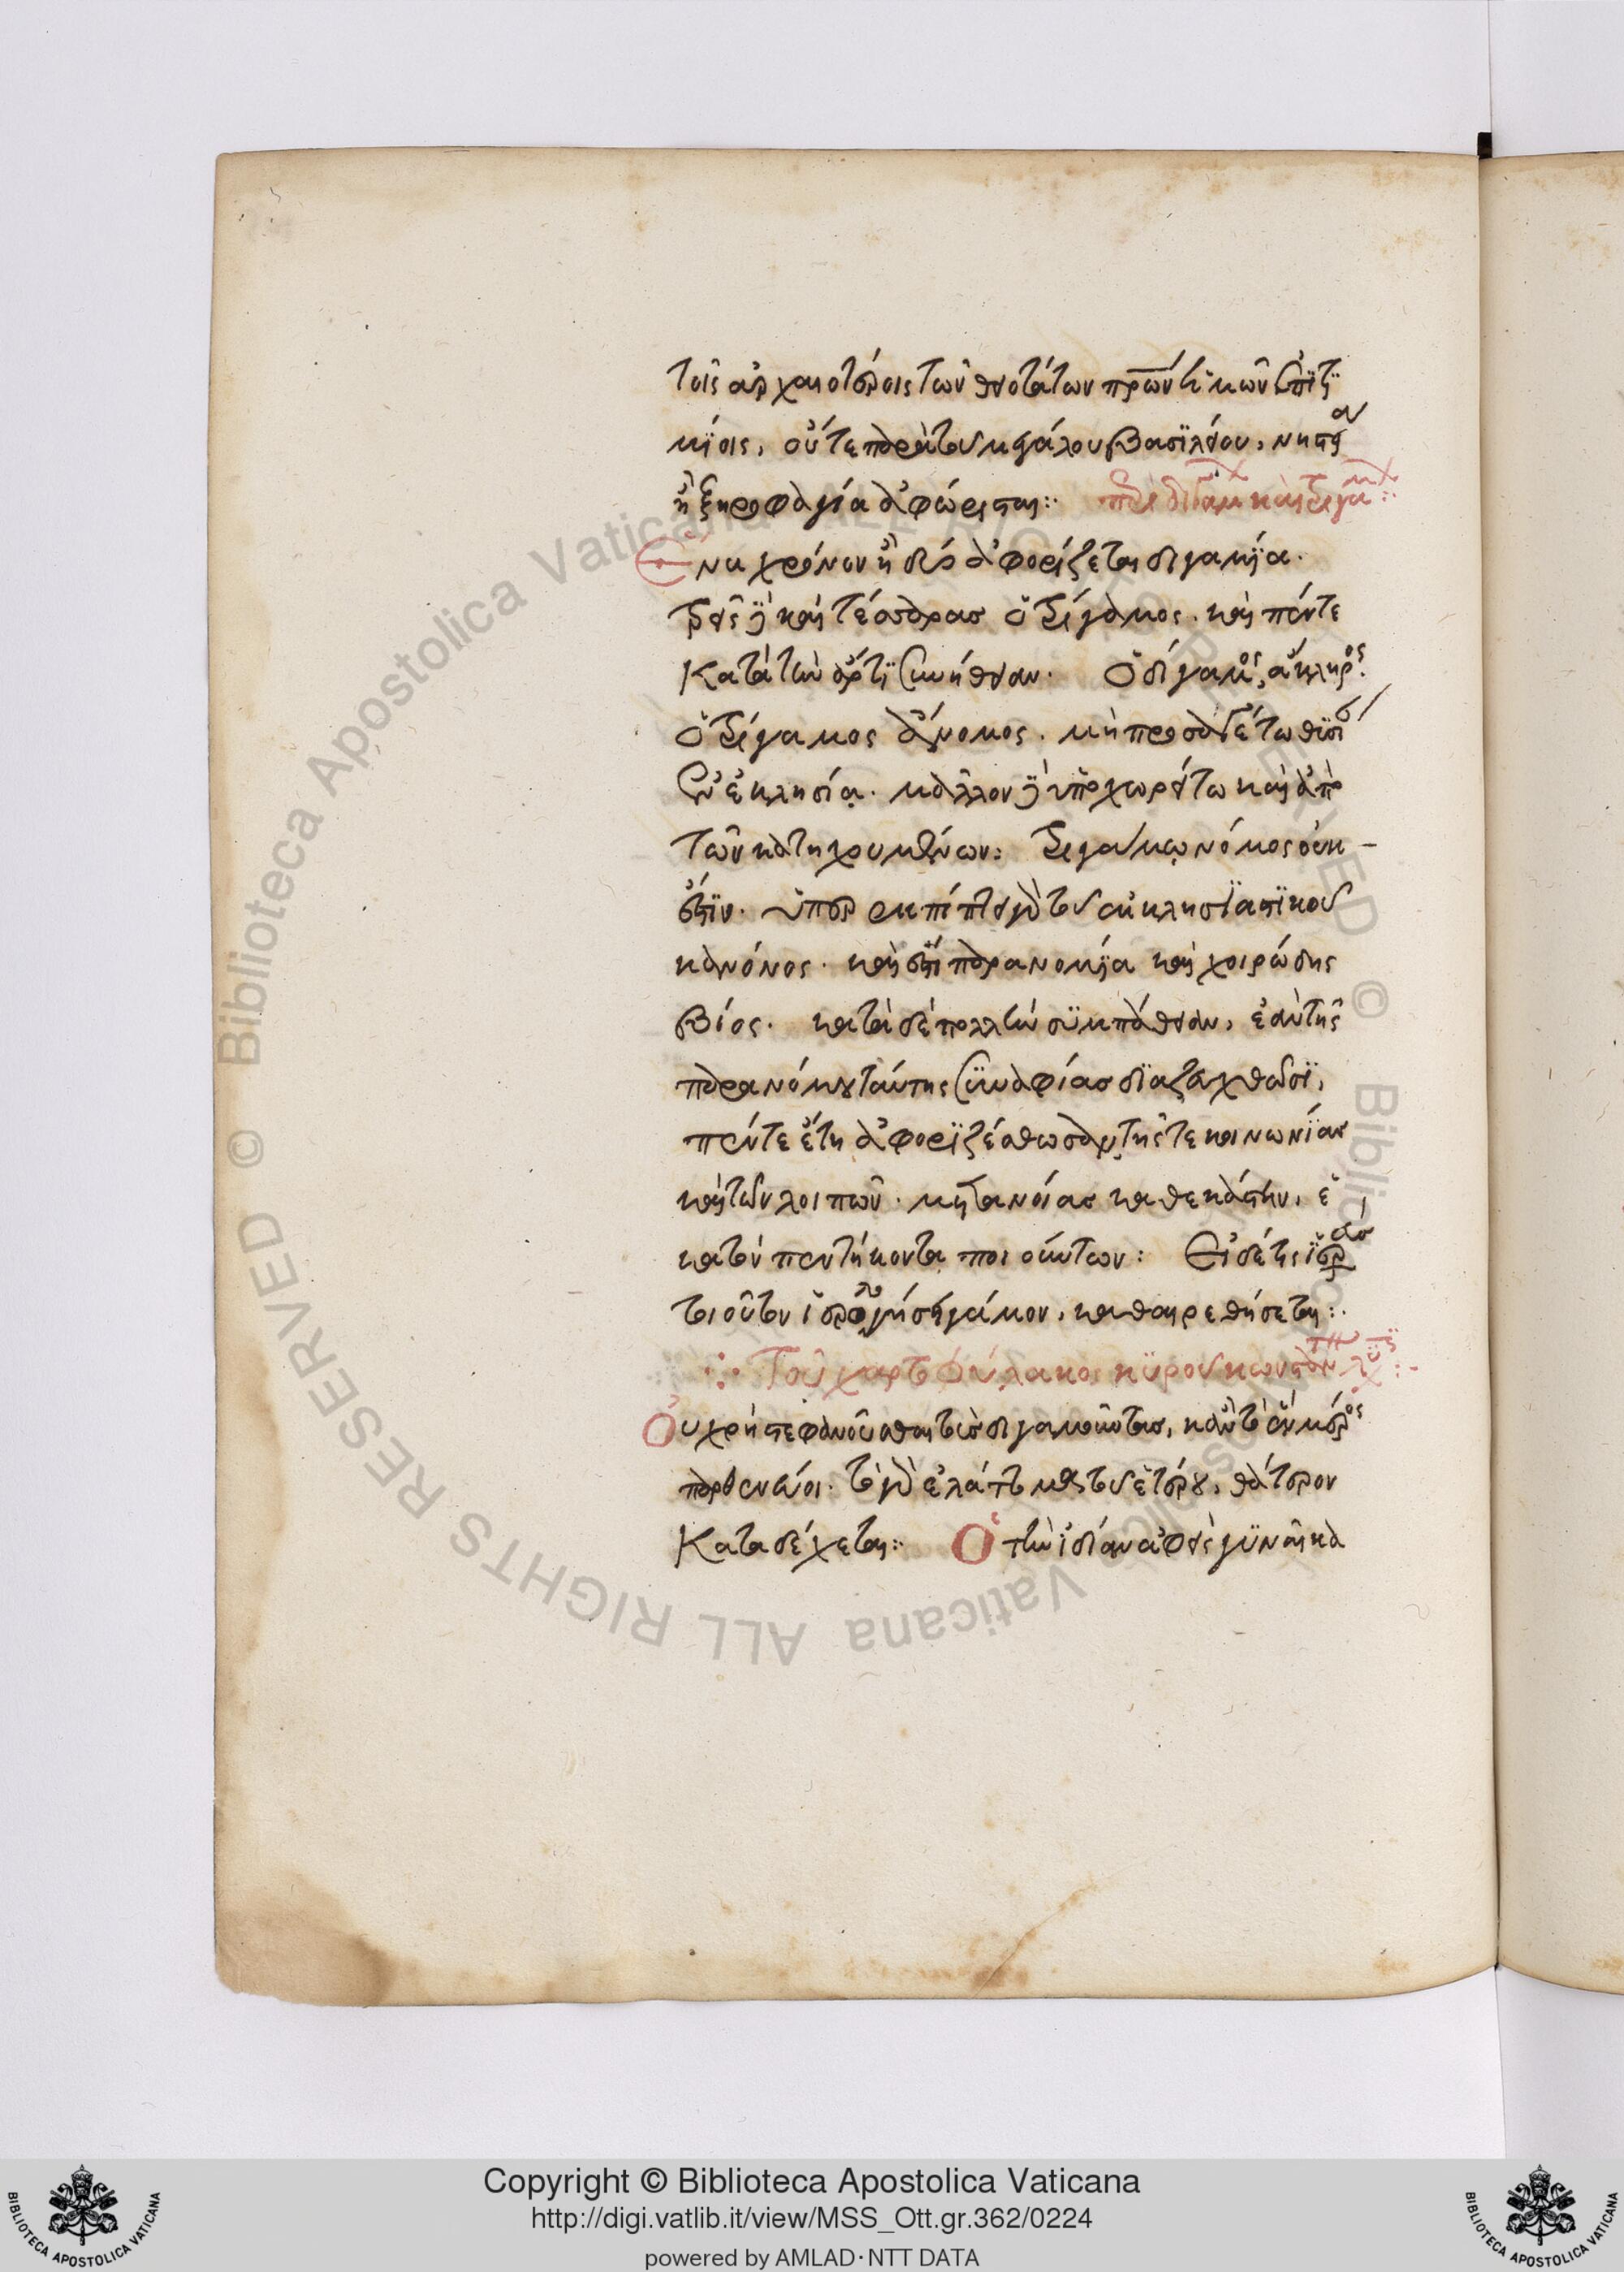 τοῖς ἀρχαιοτέροις τῶν θειοτάτων πρῶν ἡμῶν ἐπιτι
μίοις, οὔτε παρὰ τοῦ μεγάλου βασιλείου, νηστεία
ἢ ξηροφαγία ἀφώρισται:: περὶ διγάμ καὶ τριγάμ::
Ἕνα χρόνον ἢ δύο ἀφορίζεται διγαμία.
τρεῖς δὲ καὶ τέσσαρας ὁ τρίγαμος. καὶ πέντε
Κατὰ τὴν ἄρτι συνήθειαν. Ὁ δίγαμος, ἄκληρος.
ὁ τρίγαμος ἄνομος. μὴ προσδεχέτω
ἐν ἐκλησία. μᾶλλον δὲ ὑποχωρείτω καὶ ἀπὸ
τῶν κατηχουμένων: τριγαμίας νόμος οὐκ
ἔστιν. ὑπερεκπίπτει γὰρ τοῦ ἐκκλησιαστικοῦ
κανόνος. καὶ ἔστι παρανομία καὶ χοιρώδης
βίος. κατὰ δὲ πολλὴν συμπάθειαν, ἐὰν τῆς
παρανόμου ταύτης συναφίας διαζευχθῶσι,
πέντε ἔτη ἀφοριζέσθωσαν τῆς τε κοινωνίας
καὶ τῶν λοιπῶν. μετανοίας καθεκάστην, ἑ
κατὸν πεντήκοντα ποιούντων: Εἰ δέ τις ἱερεὺς
τοιοῦτον ἱερολογήσῃ γάμον, καθαιρεθήσεται:.
Τοῦ χαρτοφύλακος κυροῦ κωνσταν
Οὐ χρὴ στεφανοῦσθαι τοὺς διγαμοῦντας, κἂν τὸ ἓν μέρος
παρθενεύοι. τὸ γὰρ ἐλάττωμα τοῦ ἑτέρου, θάτερον
Καταδέχεται:: Ὁ τὴν ἰδίαν ἀφεὶς γυναῖκα
Copyright © Biblioteca Apostolica Vaticana
http://digi.vatlib.it/view/MSS_Ott.gr.362/0224
powered by AMLAD·NTT DATA